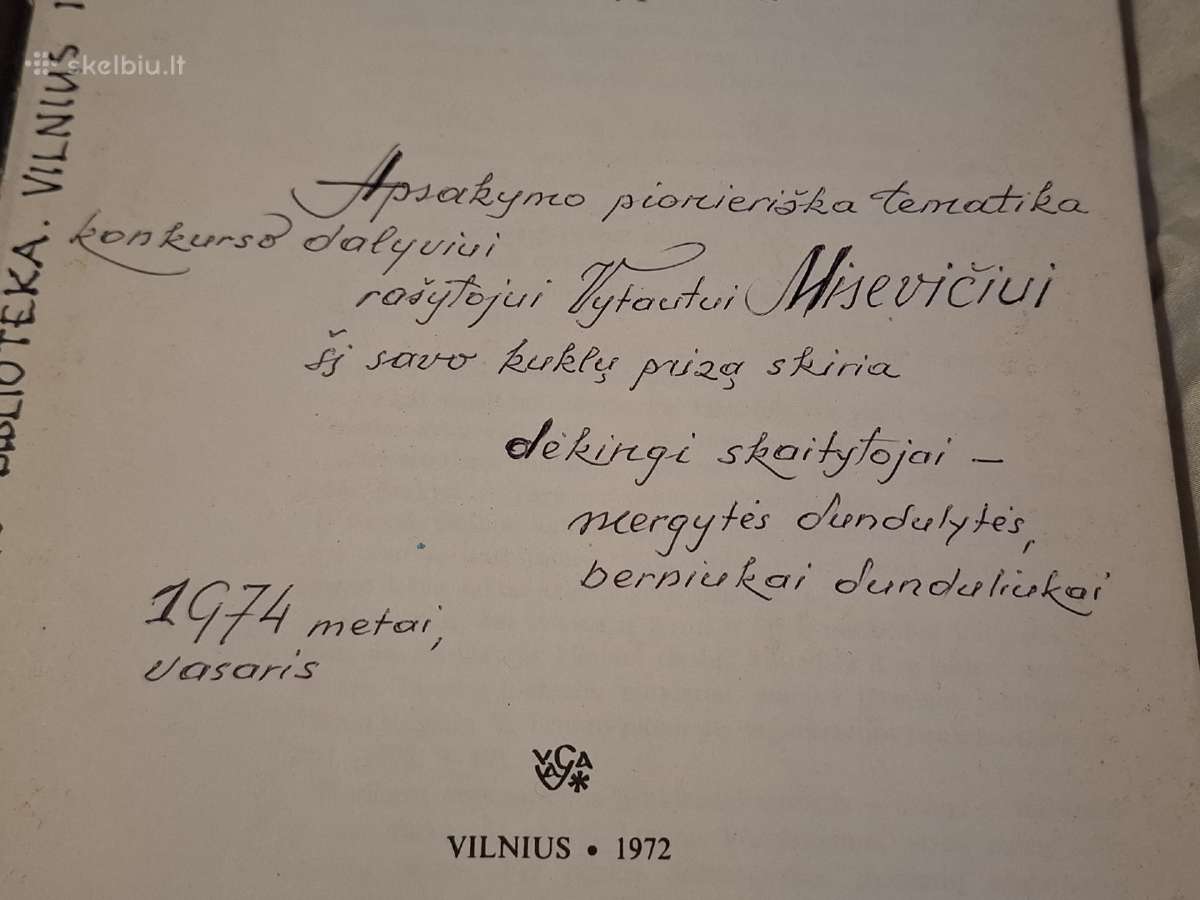 skelbiu.lt
BIBLIOTEKA. VILNIUS
Apsakymo pionieriška tematika
konkurso dalyviui
rašytojui Vytautui Misevičiui
šį savo kuklų prizą skiria
dėkingi skaitytojai –
mergytės dundulytės,
berniukai dunduliukai
1974 metai,
vasaris
VAGA
VILNIUS • 1972